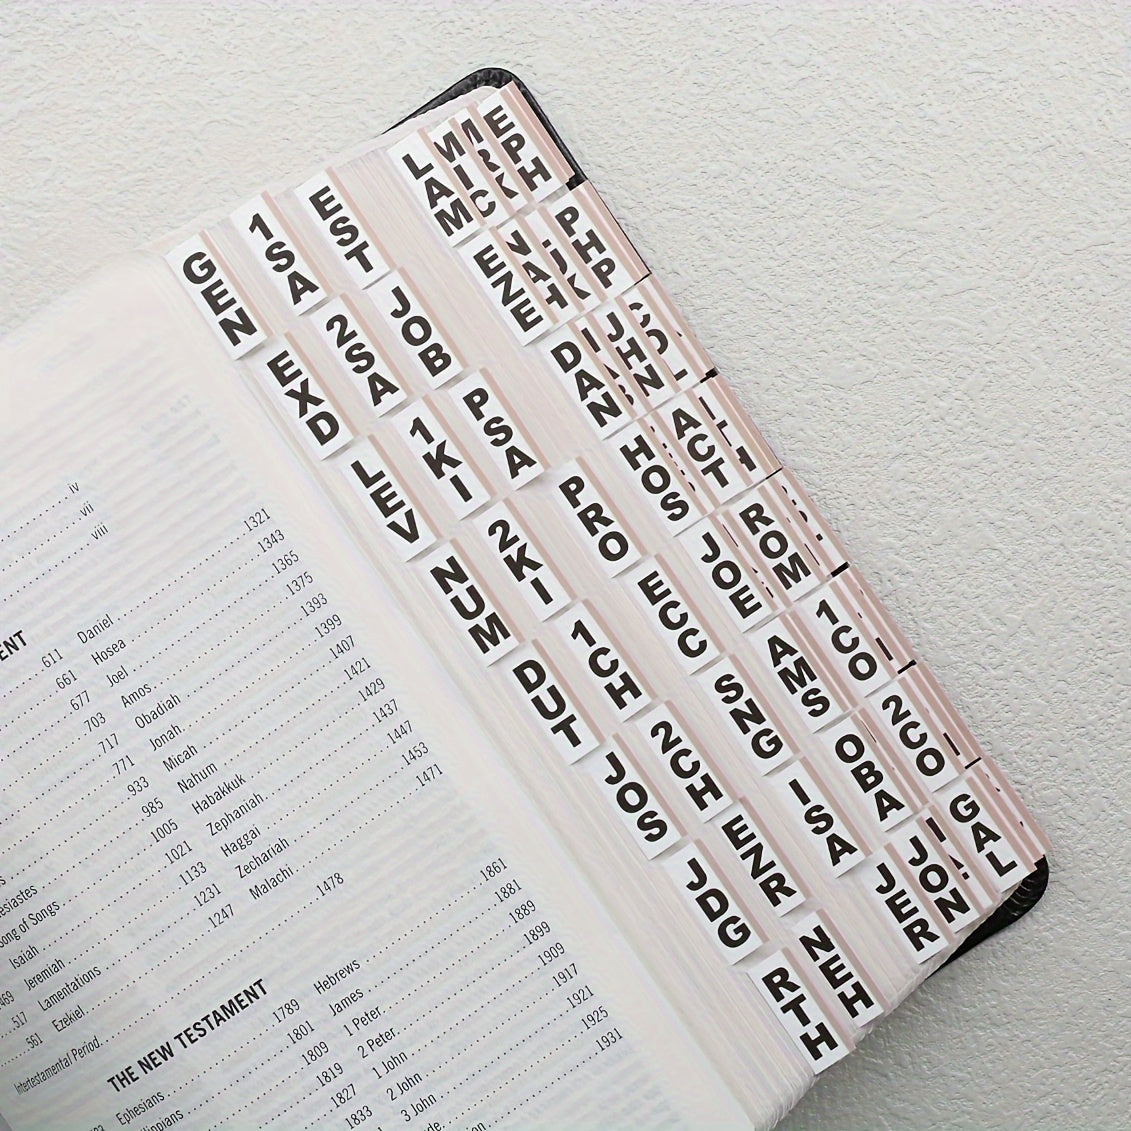 GEN
EXD
LEV
NUM
DUT
JOS
JDG
RTH
1SA
2SA
1KI
2KI
1CH
2CH
EZR
NEH
EST
JOB
PSA
PRO
ECC
SNG
ISA
JER
LAM
EZE
DAN
HOS
JOE
AMS
OBA
JON
MIC
NAT
JHN
ACT
ROM
1CO
2CO
GAL
EPH
PHP
iv
vii
viii
611
661
677
703
717
771
933
985
1005
1021
1133
1231
1247
Daniel 1321
Hosea 1343
Joel 1365
Amos 1375
Obadiah 1393
Jonah 1399
Micah 1407
Nahum 1421
Habakkuk 1429
Zephaniah 1437
Haggai 1447
Zechariah 1453
Malachi 1471
1478
Song of Songs
Isaiah
Jeremiah
517 Lamentations
561 Ezekiel
Intertestamental Period
THE NEW TESTAMENT
Ephesians 1789
1801
1809
1819
1827
1833
Hebrews 1861
James 1881
1 Peter 1889
2 Peter 1899
1 John 1909
2 John 1917
3 John 1921
1925
1931